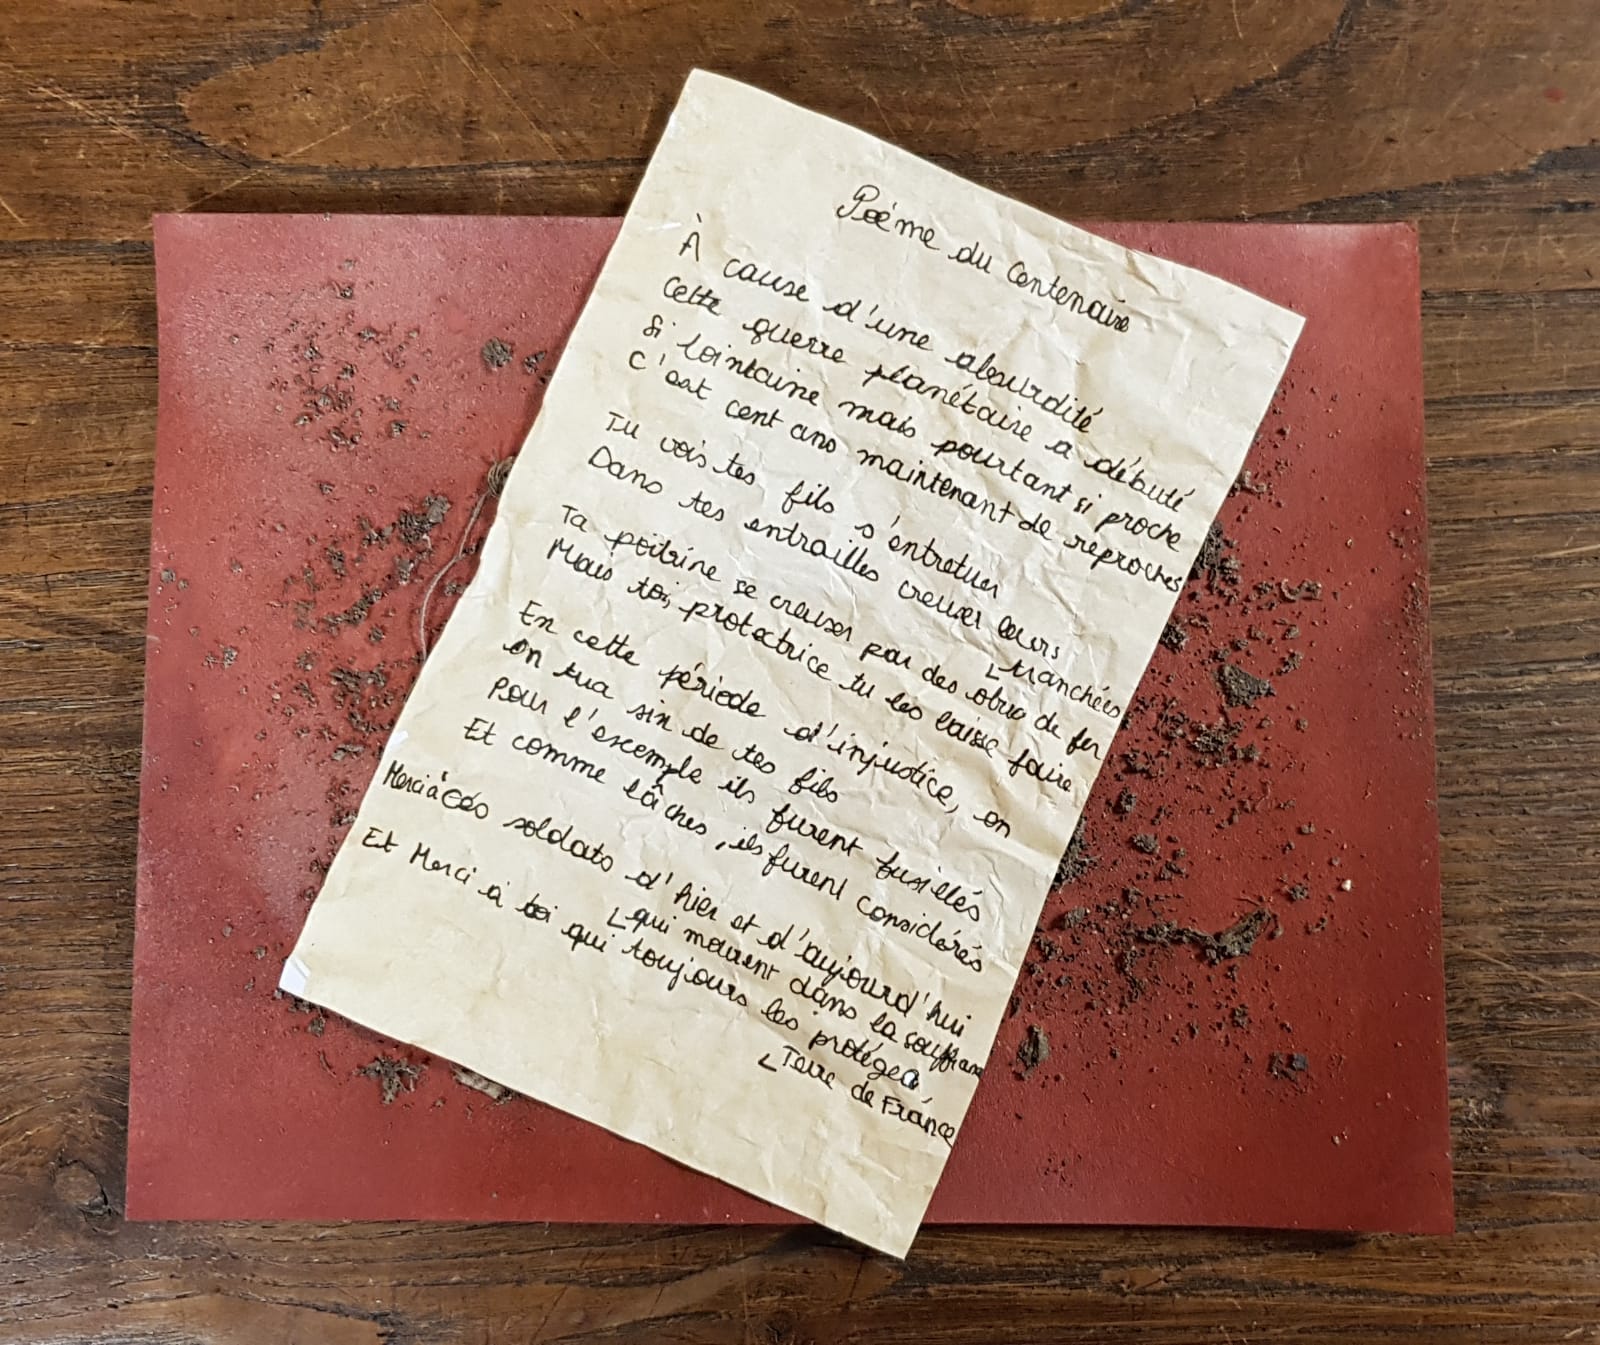 Poéme du Centenaire
À cause d'une absurdité
Cette guerre planétaire a débuté
Si lointaine mais pourtant si proche
C'est cent ans maintenant de reproches
Tu vois tes fils s'entretuer
Dans tes entrailles creuser leurs
tranchées
Ta poitrine se creuser par des obus de fer
Mais toi, protectrice tu les laisse faire
En cette période d'injustice, on
on tua six de tes fils
Pour l'exemple ils furent fusillés
Et comme lâches, ils furent considérés
Merci à Ces soldats d'hier et d'aujourd'hui
qui meurent dans la souffrance
Et Merci à toi qui toujours les protégea,
Terre de France